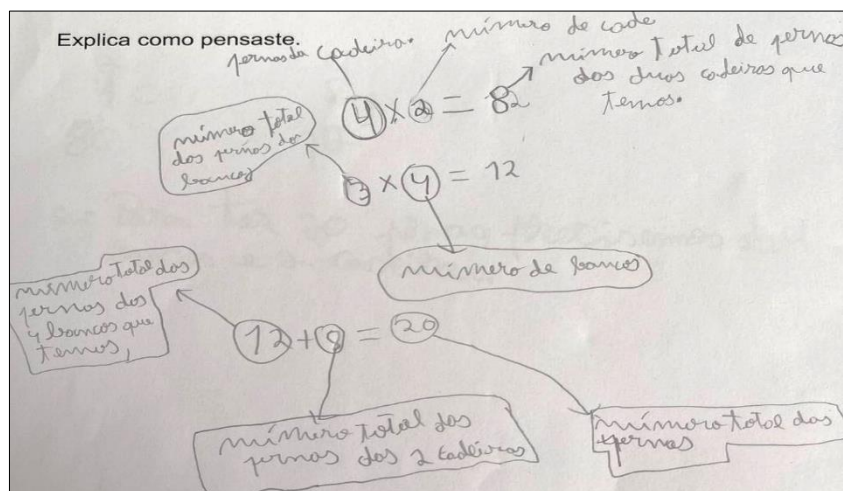 Explica como pensaste.
pernas da cadeira. número de cade
4 x 2 = 82
número total de pernas
dos duas cadeiras que
temos.
número total
dos pernas dos
bancos
3 x 4 = 12
número de bancos
número total das
pernas dos
4 bancos que
temos,
12 + 8 = 20
número total das
pernas das 2 cadeiras
número total das
pernas